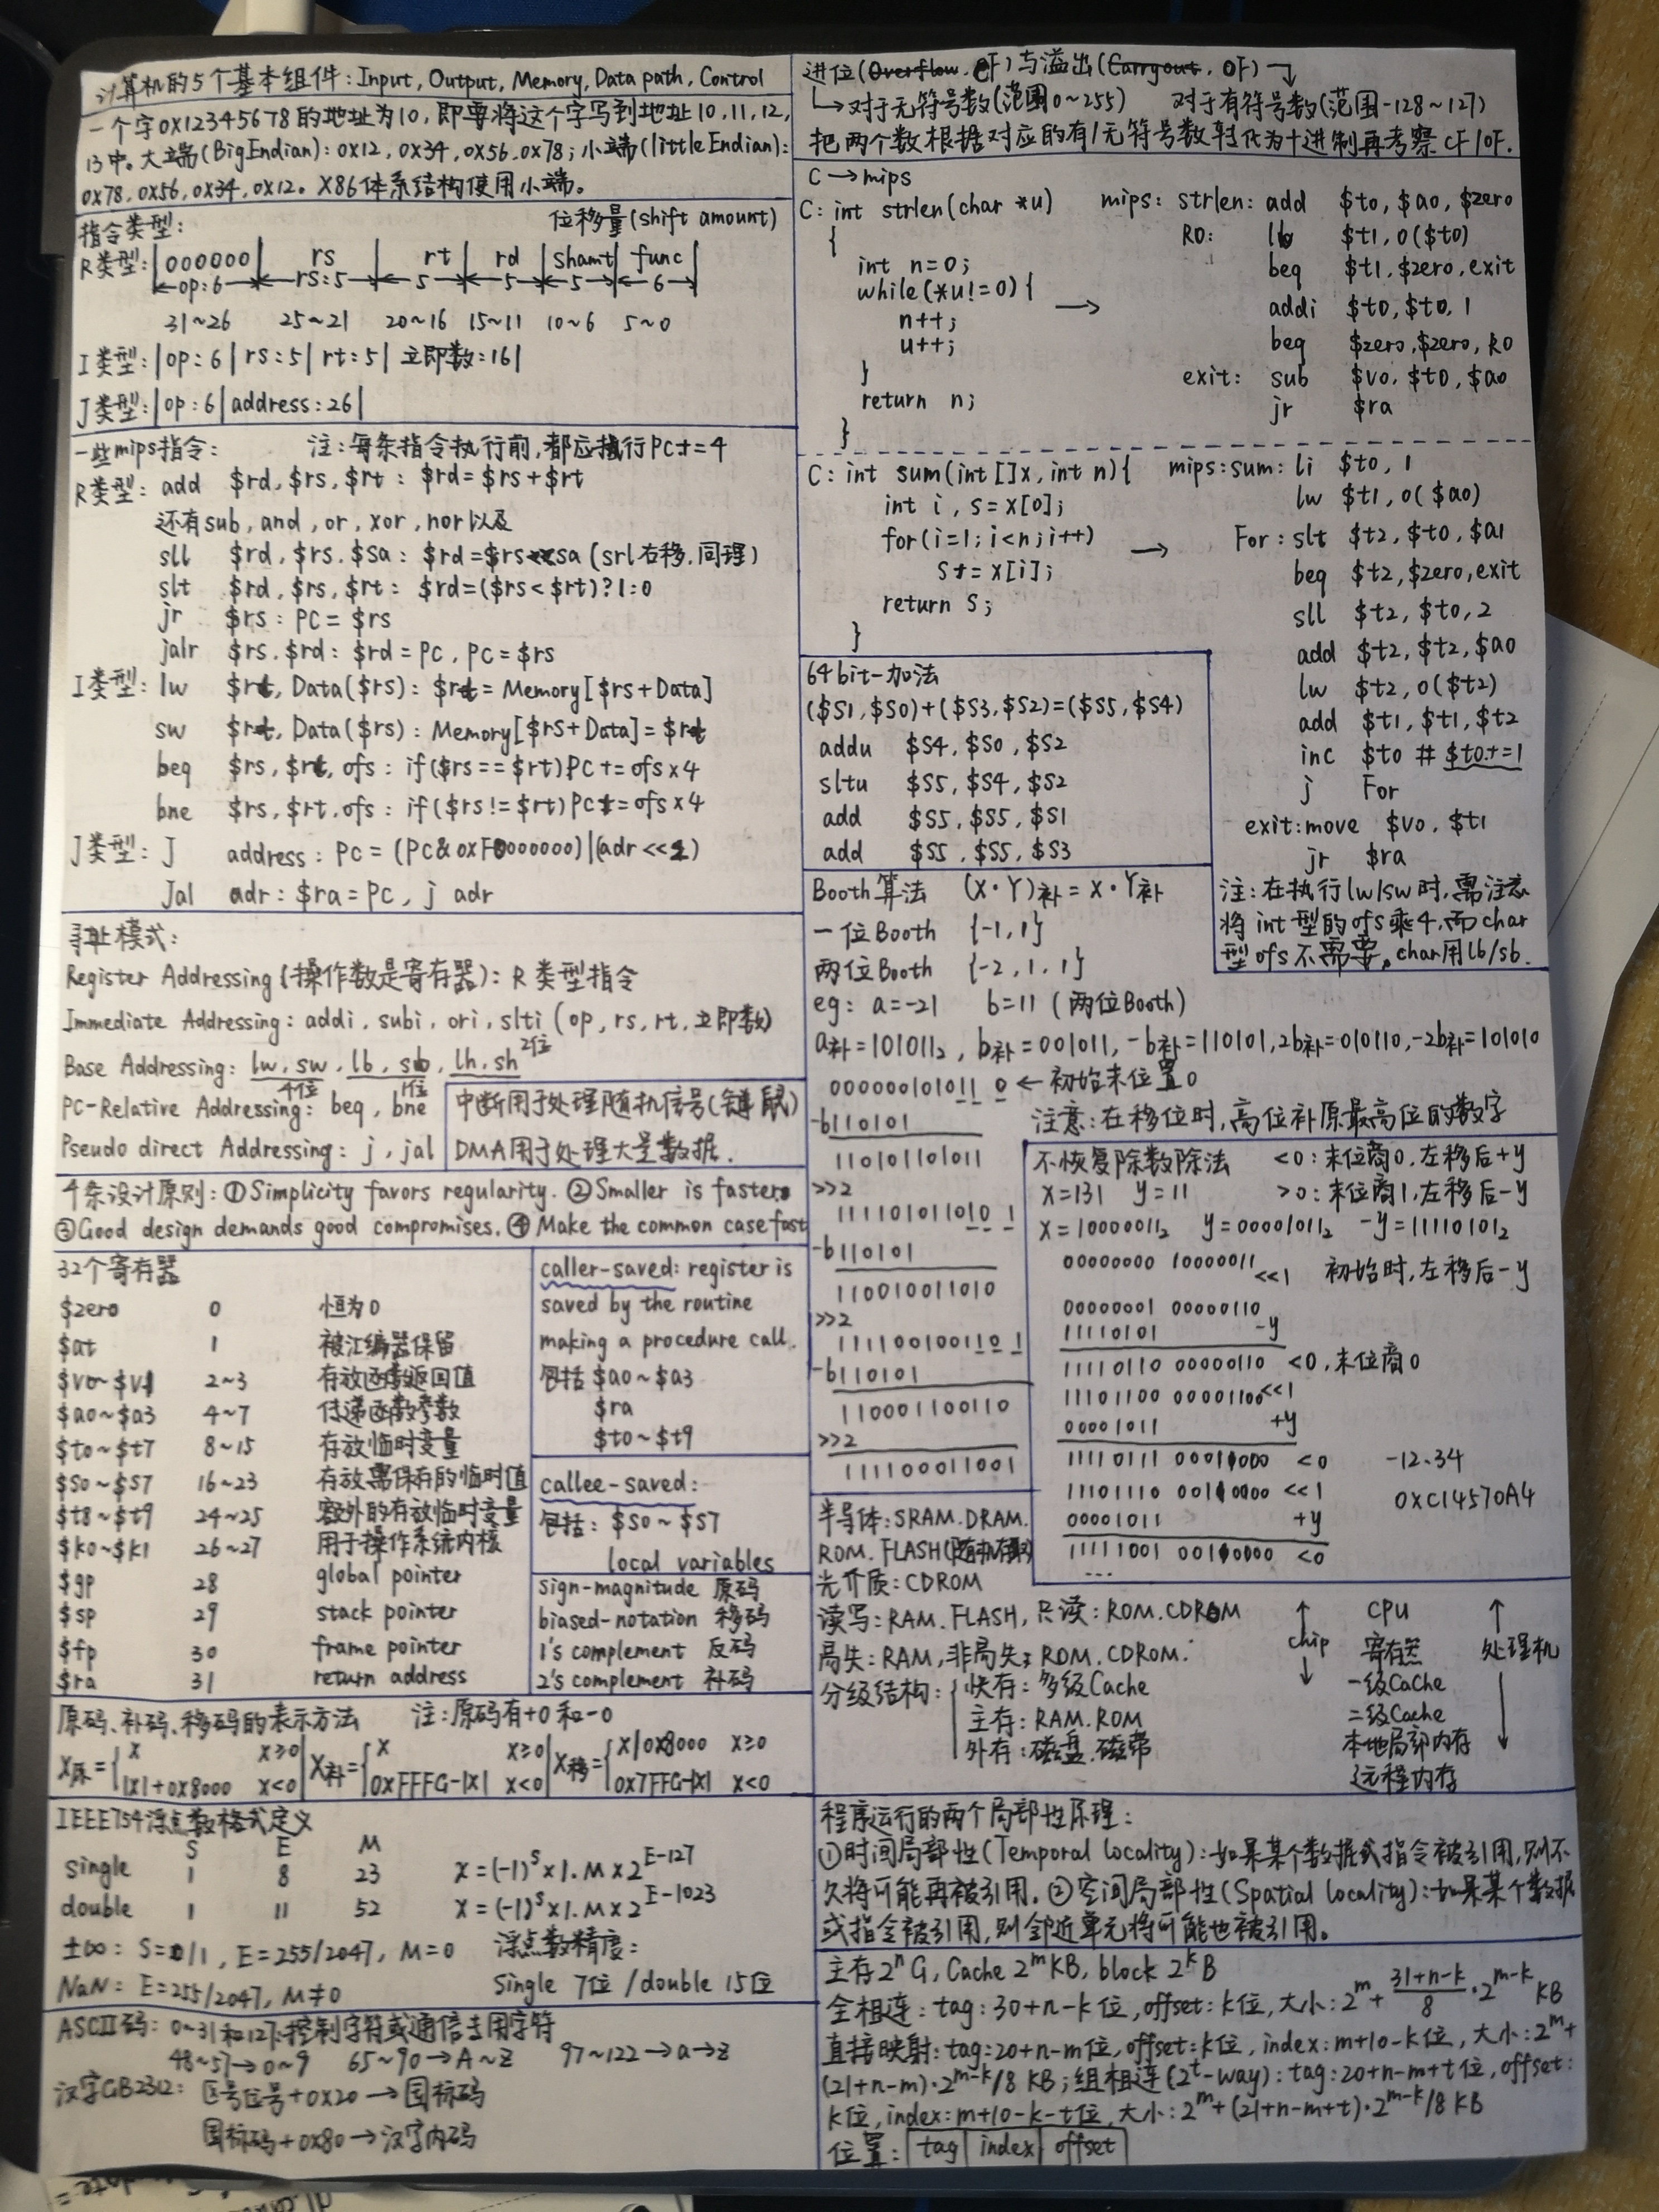 计算机的5个基本组件: Input, Output, Memory, Data path, Control
一个字0X12345678的地址为10, 即要将这个字写到地址10,11,12,
13中。大端(BigEndian): 0x12, 0x34, 0x56, 0x78; 小端(littleEndian):
0x78, 0x56, 0x34, 0x12。X86体系结构使用小端。
指令类型: 位移量(shift amount)
R类型: |000000| rs | rt | rd |shamt| func|
op:6 rs:5 5 5 5 6
31~26 25~21 20~16 15~11 10~6 5~0
I类型: |op:6|rs:5|rt:5| 立即数:16|
J类型: |op:6|address:26|
一些mips指令: 注: 每条指令执行前, 都应执行PC+=4
R类型: add $rd, $rs, $rt: $rd=$rs+$rt
还有sub, and, or, xor, nor以及
sll $rd, $rs, $sa: $rd=$rs<<sa (srl右移, 同理)
slt $rd, $rs, $rt: $rd=($rs<$rt)?1:0
jr $rs: PC=$rs
jalr $rs, $rd: $rd=PC, PC=$rs
I类型: lw $rt, Data($rs): $rt=Memory[$rs+Data]
sw $rt, Data($rs): Memory[$rs+Data]=$rt
beq $rs, $rt, ofs: if($rs==$rt)PC+=ofs×4
bne $rs, $rt, ofs: if($rs!=$rt)PC+=ofs×4
J类型: J address: PC=(PC&0xF0000000)|(adr<<2)
Jal adr: $ra=PC, j adr
寻址模式:
Register Addressing (操作数是寄存器): R类型指令
Immediate Addressing: addi, subi, ori, slti (op, rs, rt, 立即数)
Base Addressing: lw, sw, lb, sb, lh, sh
4位 1位 2位
PC-Relative Addressing: beq, bne
Pseudo direct Addressing: j, jal
中断用于处理随机信号(键鼠)
DMA用于处理大量数据.
4条设计原则: ①Simplicity favors regularity. ②Smaller is faster.
③Good design demands good compromises. ④Make the common case fast
32个寄存器
$zero 0 恒为0
$at 1 被汇编器保留
$v0~$v1 2~3 存放函数返回值
$a0~$a3 4~7 传递函数参数
$t0~$t7 8~15 存放临时变量
$s0~$s7 16~23 存放需保存的临时值
$t8~$t9 24~25 额外的存放临时变量
$k0~$k1 26~27 用于操作系统内核
$gp 28 global pointer
$sp 29 stack pointer
$fp 30 frame pointer
$ra 31 return address
caller-saved: register is
saved by the routine
making a procedure call.
包括 $a0~$a3
$ra
$t0~$t9
callee-saved:
包括: $s0~$s7
local variables
sign-magnitude 原码
biased-notation 移码
1's complement 反码
2's complement 补码
原码、补码、移码的表示方法 注: 原码有+0和-0
X原={X X≥0 |X补={X X≥0 |X移={X|0x8000 X≥0
|X|+0x8000 X<0 0XFFFG-|X| X<0 0x7FFG-|X| X<0
IEEE754浮点数格式定义
S E M
single 1 8 23 x=(-1)^S×1.M×2^E-127
double 1 11 52 x=(-1)^S×1.M×2^E-1023
±∞: S=0/1, E=255/2047, M=0 浮点数精度:
NaN: E=255/2047, M≠0 Single 7位/double 15位
ASCII码: 0~31和127:控制字符或通信专用字符
48~57→0~9 65~90→A~Z 97~122→a→z
汉字GB2312: 区号位号+0x20→国标码
国标码+0x80→汉字内码
进位(Overflow, CF)与溢出(Carryout, OF)
→对于无符号数(范围0~255) 对于有符号数(范围-128~127)
把两个数根据对应的有/无符号数转化为十进制再考察CF/OF.
C→mips
C: int strlen(char *u)
{
int n=0;
while(*u!=0){
n++;
u++;
}
return n;
}
mips: strlen: add $t0, $a0, $zero
R0: lb $t1, 0($t0)
beq $t1, $zero, exit
addi $t0, $t0, 1
beq $zero, $zero, R0
exit: sub $v0, $t0, $a0
jr $ra
C: int sum(int []x, int n){
int i, s=x[0];
for(i=1;i<n;i++)
s+=x[i];
return s;
}
mips: sum: li $t0, 1
lw $t1, 0($a0)
For: slt $t2, $t0, $a1
beq $t2, $zero, exit
sll $t2, $t0, 2
add $t2, $t2, $a0
lw $t2, 0($t2)
add $t1, $t1, $t2
inc $t0 # $t0+=1
j For
exit: move $v0, $t1
jr $ra
注: 在执行lw/sw时, 需注意
将int型的ofs乘4, 而char
型ofs不需要。char用lb/sb.
64bit-加法
($S1,$S0)+($S3,$S2)=($S5,$S4)
addu $S4, $S0, $S2
sltu $S5, $S4, $S2
add $S5, $S5, $S1
add $S5, $S5, $S3
Booth算法 (X·Y)补=X·Y补
一位Booth {-1,1}
两位Booth {-2,1,1}
eg: a=-21 b=11 (两位Booth)
a补=101011₂, b补=001011, -b补=110101, 2b补=010110, -2b补=101010
000000101011 0 ← 初始末位置0
-b110101
注意: 在移位时, 高位补原最高位的数字
110101101011
>>2
111101011010 1
-b110101
110010011010
>>2
111100100110 1
-b110101
110001100110
>>2
111100011001
不恢复除数除法 <0: 末位商0, 左移后+y
X=131 y=11 >0: 末位商1, 左移后-y
X=10000011₂ y=00001011₂ -y=11110101₂
00000000 10000011 <<1 初始时, 左移后-y
00000001 00000110
11110101 -y
11110110 00000110 <0, 末位商0
11101100 00001100 <<1
00001011 +y
11110111 00011000 <0
11101110 00110000 <<1
00001011 +y
11111001 00110000 <0
...
-12.34
0XC14570A4
半导体: SRAM. DRAM.
ROM. FLASH(随机存取)
光介质: CDROM
读写: RAM. FLASH, 只读: ROM. CDROM
易失: RAM, 非易失: ROM. CDROM.
分级结构: 快存: 多级Cache
主存: RAM. ROM
外存: 磁盘. 磁带
chip
CPU
寄存器
一级Cache
二级Cache
本地局部内存
远程内存
处理机
程序运行的两个局部性原理:
①时间局部性(Temporal locality): 如果某个数据或指令被引用, 则不
久将可能再被引用. ②空间局部性(Spatial locality): 如果某个数据
或指令被引用, 则邻近单元将可能也被引用。
主存2ⁿG, Cache 2^m KB, block 2^k B
全相连: tag: 30+n-k位, offset: k位, 大小: 2^m + (31+n-k)/8 · 2^m-k KB
直接映射: tag: 20+n-m位, offset: k位, index: m+10-k位, 大小: 2^m+
(21+n-m)·2^m-k/8 KB; 组相连(2^t-way): tag: 20+n-m+t位, offset:
k位, index: m+10-k-t位, 大小: 2^m+(21+n-m+t)·2^m-k/8 KB
位置: |tag|index|offset|